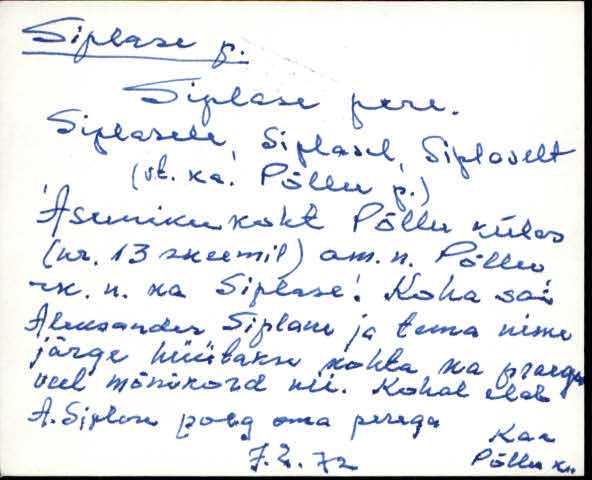 Siplase p.
Siplase pere.
Siplasele, Siplasel, Siplaselt
(vt. ka. Põllu p.)
'Asunikukoht Põllu külas
(nr. 13 skeemil) am. n. Põllu,
rk. n. ka Siplase'. Koha sai
Aleksander Siplane ja tema nime
järge hüütakse kohta ka praegu
veel mõnikord nii. Kohal elab
A. Siplase poeg oma perega
7.2.72
Kaa
Põllu k.